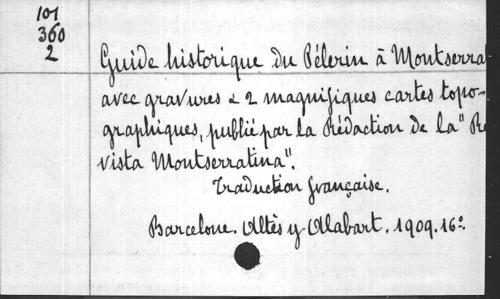 101
360
2
Guide historique du Pélerin à Montserra
avec gravures & 2 magnifiques cartes topo-
graphiques, publié par la Rédaction de la "Re
vista Montserratina".
Traduction française.
Barcelone. Altès y Alabart. 1909. 16º